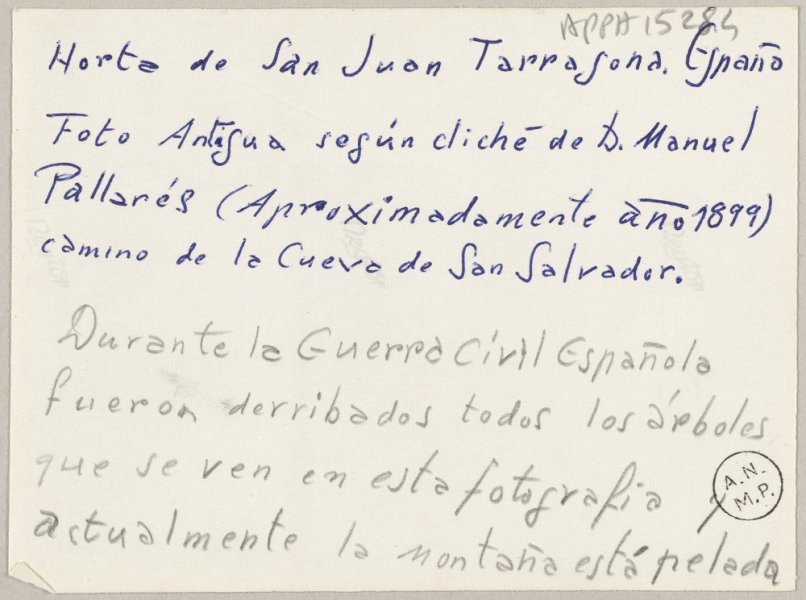 APPH 15284
Horta de San Juan Tarragona. España
Foto Antigua según cliché de D. Manuel
Pallarés (Aproximadamente año 1899)
camino de la Cueva de San Salvador.
Durante la Guerra Civil Española
fueron derribados todos los árboles
que se ven en esta fotografia y
A.N.
M.P.
actualmente la montaña está pelada